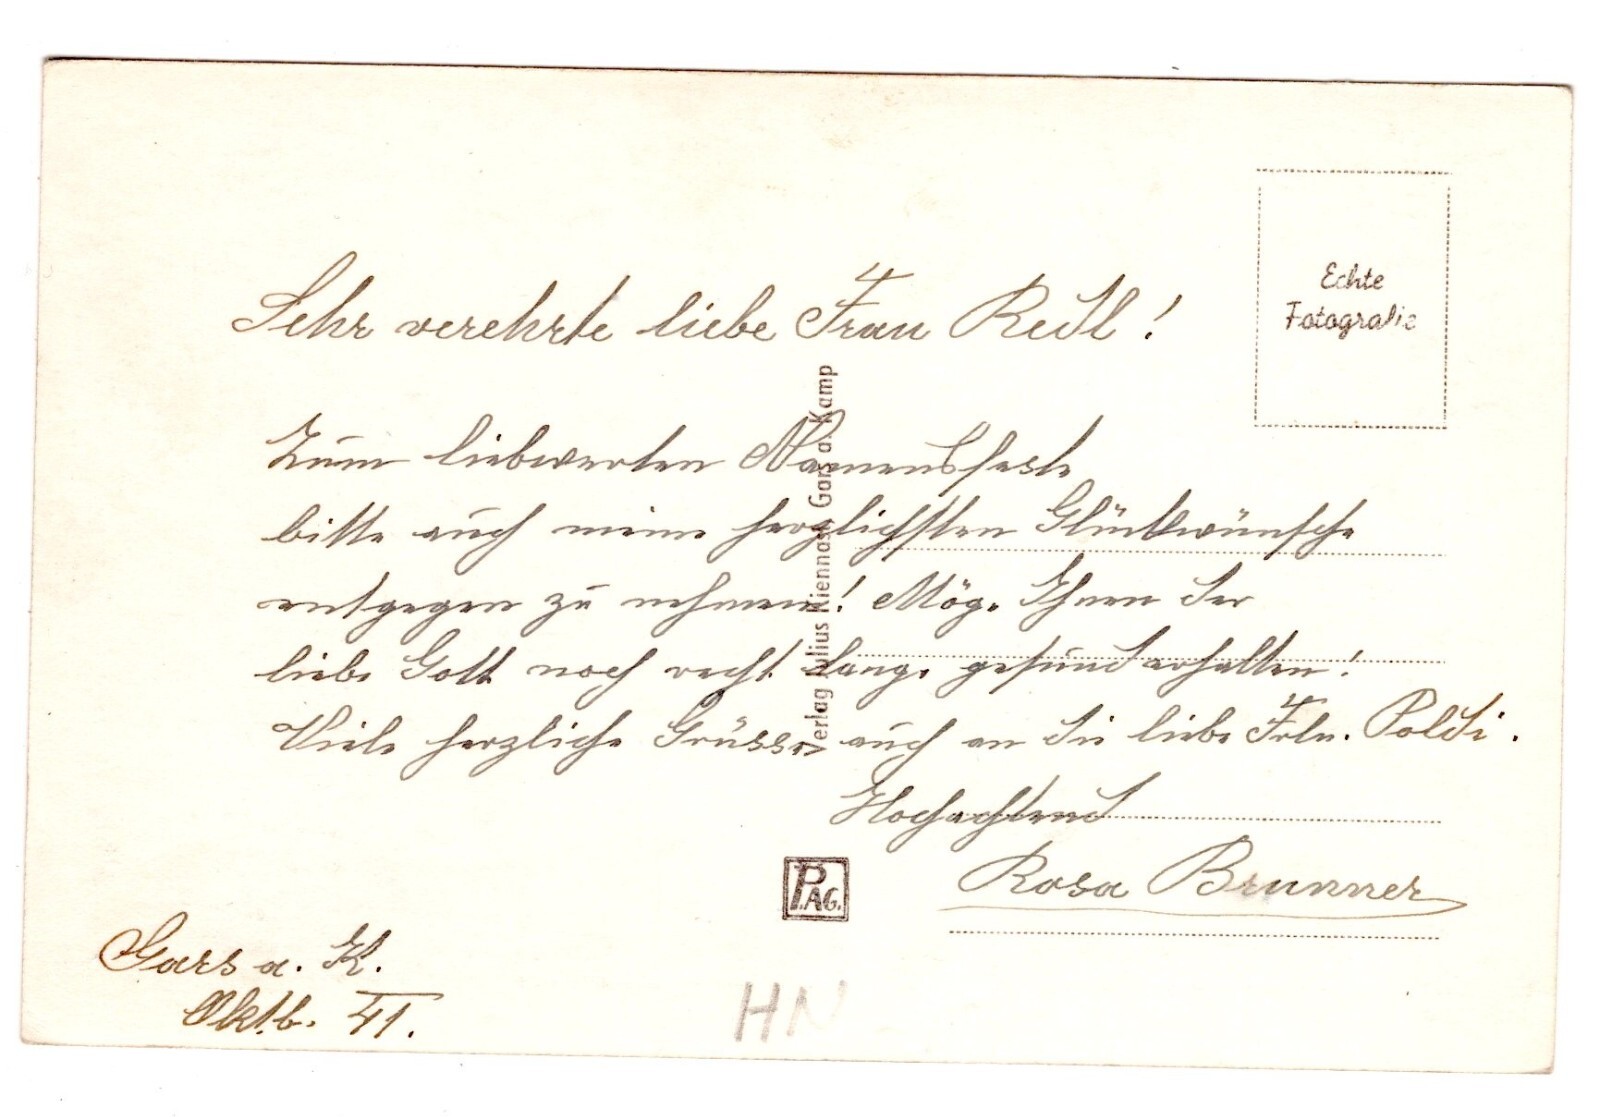 Sehr verehrte liebe Frau Redl!
Echte
Fotografie
Zum liebwerten Namensfeste
bitte auch meine herzlichsten Glückwünsche
entgegen zu nehmen! Möge Ihnen der
liebe Gott noch recht lange gesund erhalten!
Viele herzliche Grüsse auch an die liebe Frln. Poldi.
Hochachtend
Rosa Brunner
Gars a. K.
Oktb. 41.
Verlag Julius Kiennast Gars a. Kamp
P.AG.
HN